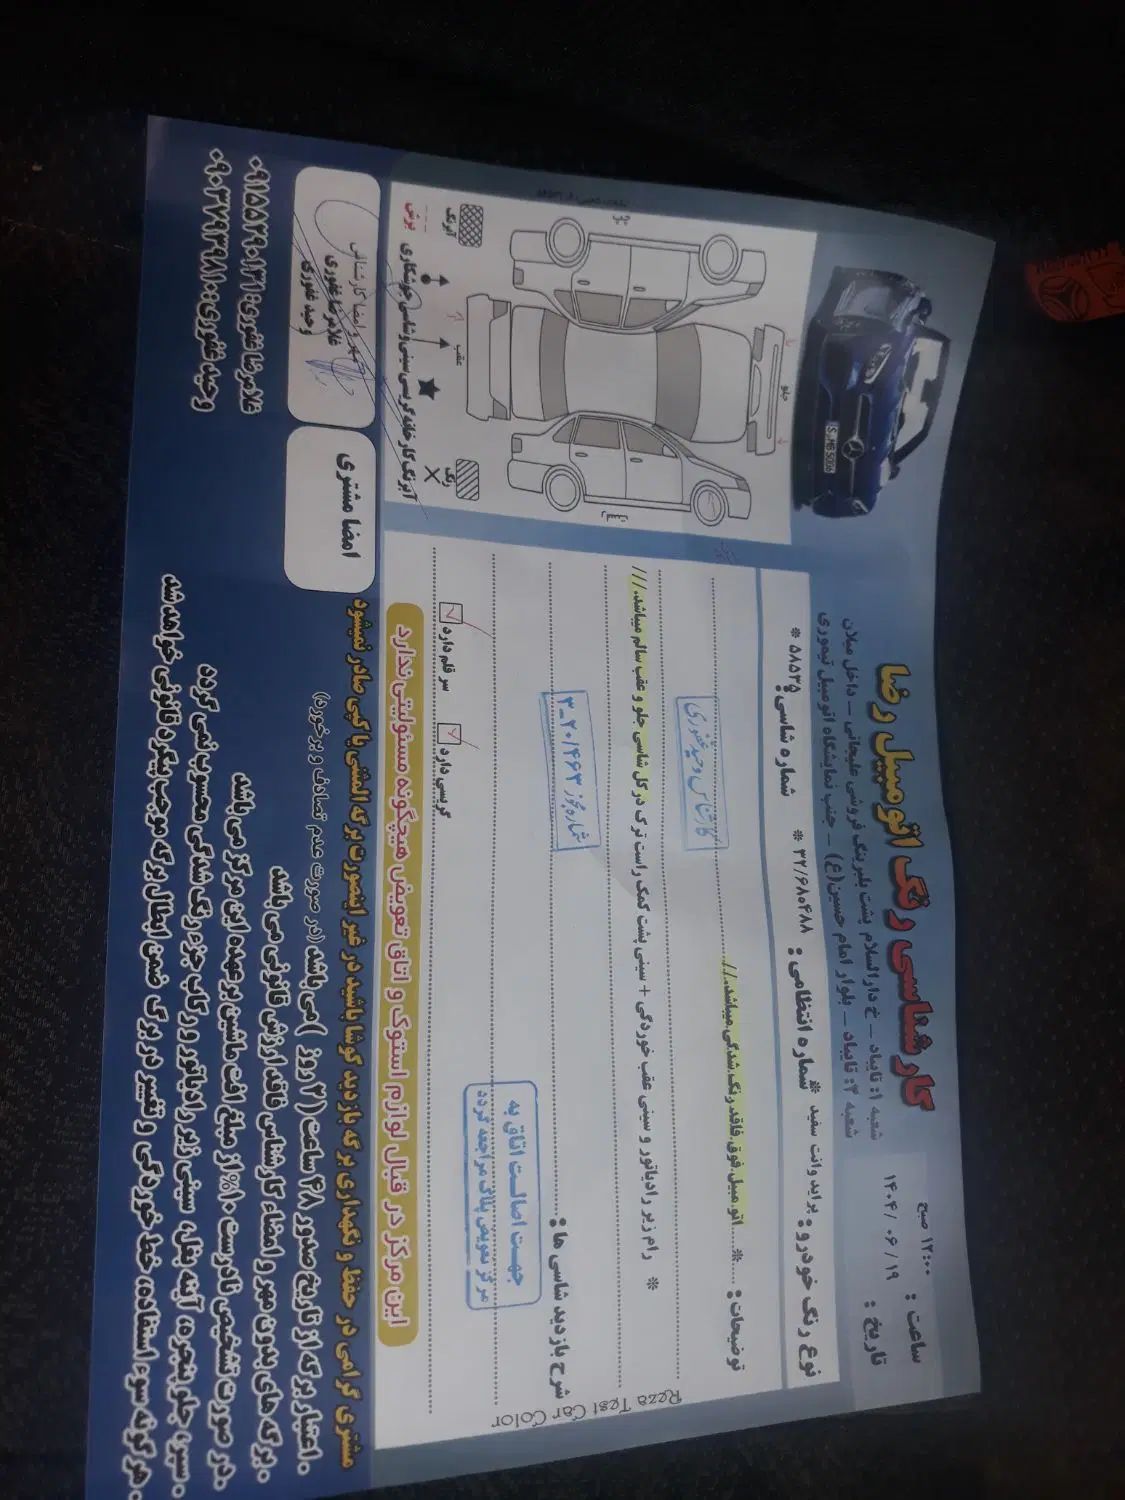 کارشناسی رنگ اتومبیل رضا
شعبه ۱: تایباد - خ دارالسلام پشت بلبرینگ فروشی علیجانی - داخل میلان
شعبه ۲: تایباد - بلوار امام حسین(ع) - جنب نمایشگاه اتومبیل تیموری
ساعت : ۱۲:۰۰ صبح
تاریخ : ۱۴۰۴/۰۶/۱۹
نوع و رنگ خودرو: پراید وانت سفید * شماره انتظامی : ۳۲/۶۸۰۴۸۸ * شماره شاسی: ۵۸۵۳۵ *
توضیحات : ... * ... اتومبیل فوق فاقد رنگ شدگی میباشد.//
کارشناس وحید غفوری
* رام زیر رادیاتور و سینی عقب خوردگی + سینی پشت کمک راست ترک در کل شاسی جلو و عقب سالم میباشد.///
شرح بازدید شاسی ها :
شماره مجوز ۳_۲۰/۴۶۳
جهت اصالت اتاق به
مرکز تعویض پلاک مراجعه گردد
سر قلم دارد
گریسی دارد
این مرکز در قبال لوازم استوک و اتاق تعویض هیچگونه مسئولیتی ندارد
Reza Test Car Color
S MB 5006
جلو
عقب
چپ
راست
آبرنگ
رنگ
برش
جوشکاری
سینی و شاسی
گریسی
آبرنگ کارخانه
مهر و امضا کارشناس
غلامرضا غفوری
وحید غفوری
امضا مشتری
مشتری گرامی در حفظ و نگهداری برگه بازدید کوشا باشید در غیر اینصورت برگه المثنی یا کپی صادر نمیشود
. اعتبار برگه از تاریخ صدور ۴۸ ساعت (۲ روز ) می باشد. (در صورت عدم تصادف و برخورد)
. برگه های بدون مهر و امضاء کارشناس فاقد ارزش قانونی می باشد
. در صورت تشخیص نادرست ۱۰% از مبلغ افت ماشین بر عهده این مرکز می باشد
. سپر، جلو پنجره، آینه بغل، سینی زیر رادیاتور و رکاب جزو رنگ شدگی محسوب نمی گردد
. هر گونه سوء استفاده، خط خوردگی و تغییر در برگ ضمن ابطال برگه موجب پیگرد قانونی خواهد شد
غلامرضا غفوری: ۰۹۱۵۵۲۹۰۱۳۱
وحید غفوری: ۰۹۰۳۷۹۳۹۸۱۰